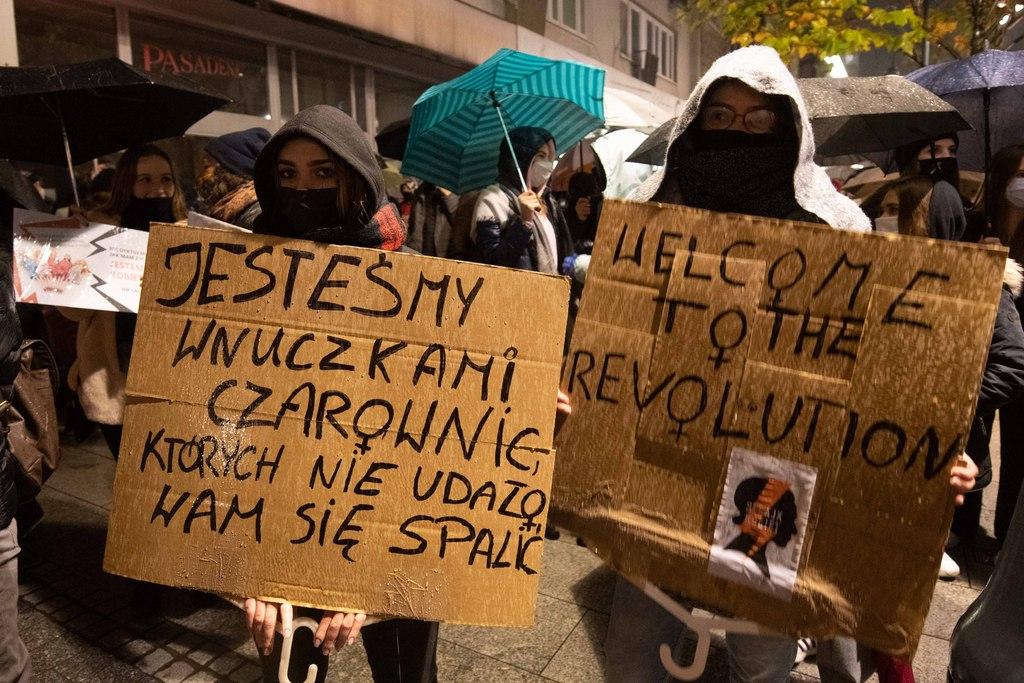 PASADENA
JESTEŚMY
WNUCZKAMI
CZAROWNIC,
KTÓRYCH NIE UDAŁO
WAM SIĘ SPALIĆ
WELCOME
TO THE
REVOLUTION